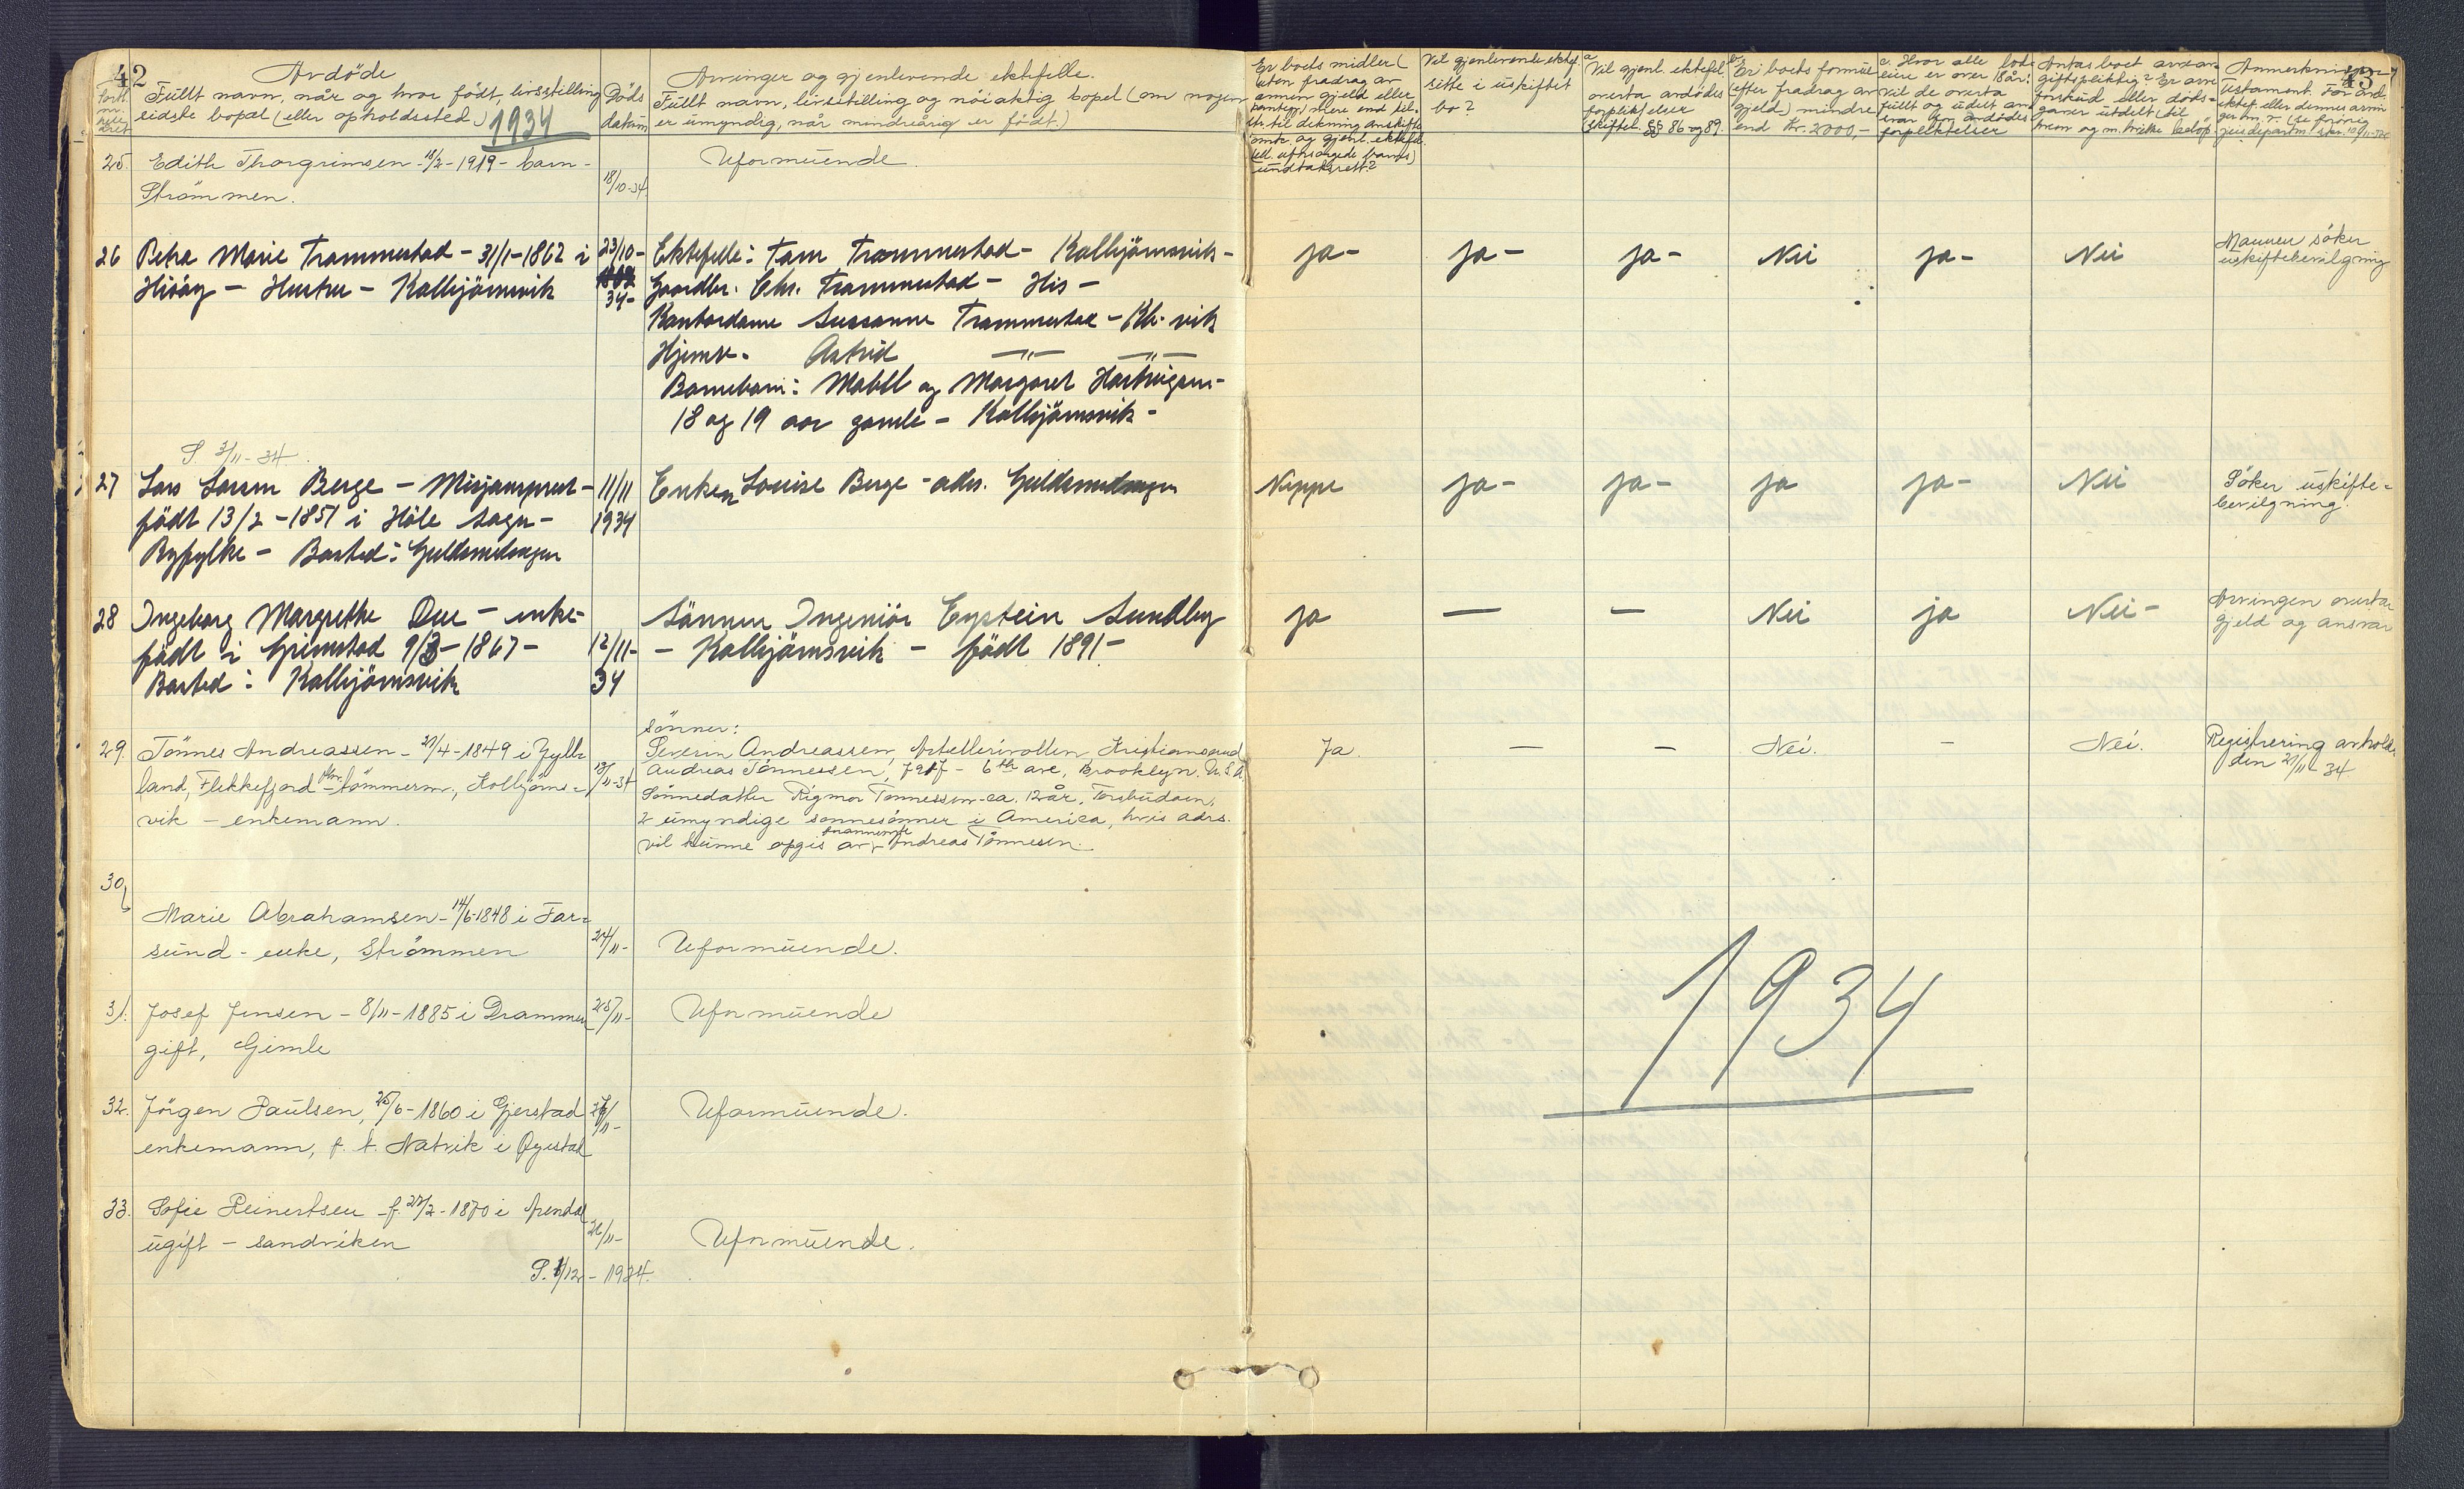 42
Avdöde
Fullt navn, når og hvor født, livsstilling
sidste bopæl (eller opholdssted) 1934
Døds
datum
Arvinger og gjenlevende ektefelle.
Fullt navn, livsstilling og nöiaktig bopel (om nogen
er umyndig, når mindreårig er født.)
Er boets midler (
uten fradrag av
annen gjeld eller
undtaksrett?
Vil gjenlevende ektef.
sitte i uskiftet
bo?
Vil gjenl. ektefel
overta avdödes
forpliktelser
skiftel. §§ 86 og 89.
Er boets formue
(efter fradrag av
gjeld) mindre
end Kr. 2000,-
Hvor alle lod-
eiere er over 18 år:
Vil de overta
forpliktelser
Antas boet
Anmerkninger
43
25. Edith Thorgrimsen - 18/2-1919 - barn -
Strömmen.
18/10-34
Uformuende.
26 Petra Marie Trommestad - 31/1-1862 i
Hisöy - Hustru - Kolbjörnsvik
23/10-
34-
Ektefelle: Tom Trommestad - Kolbjörnsvik -
Gaardbr. Chr. Trommestad - His -
Kontordame Sussanne Trommestad - Kb. vik
Hjemv. Astrid —"— —"—
Barnebarn: Mabll og Margaret
18 og 19 aar gamle - Kolbjörnsvik -
ja - ja - ja - Nei ja - Nei
Mannen söker
uskiftebevilgning
P 3/11-34.
27 Lars Larsen Berge - Misjonsprest -
födt 13/2-1851 i Höle sogn -
Ryfylke - Bosted: Guldsmedengen
11/11
1934
Enken Louise Berge - adrs. Guldsmedengen
Neppe ja - ja - ja ja - Nei
Söker uskifte-
bevilgning.
28 Ingeborg Margrethe Due - enke -
födt i Grimstad 9/3-1867 -
Bosted: Kolbjörnsvik
12/11-
34
Sönnen Ingeniör Eystein Sundby
- Kolbjörnsvik - födt 1891 -
ja — — Nei ja Nei -
Arvingen overtar
gjeld og ansvar
29. Tönnes Andreassen - 21/4-1849 i Gylland,
Flekkefjord - tömmerm., Kolbjörns-
vik - enkemann.
13/11-34
Sönner:
Severin Andreassen, Artellerivollen, Kristiansand
Andreas Tönnessen, 7217 - 6th ave, Brooklyn. U.S.A.
Sönnedatter Rigmor Tönnessen - ca. 12 år, Torsbudaen,
2 umyndige sönnesönner i America, hvis adrs.
vil kunne opgis av frannevnte Andreas Tönnesen.
Ja — — Nei. — Nei.
Registrering avholdt
den 21/11-34
30.
Marie Abrahamsen - 14/6-1848 i Far-
sund - enke, Strömmen
24/11-
Uformuende.
31. Josef Jensen - 8/11-1885 i Drammen
gift, Gimle
25/11-
Uformuende
32. Jörgen Paulsen, 25/6-1860 i Gjerstad
enkemann, f. t. Natvik i Öyestad
Uformuende.
33. Sofie Reinertsen - f. 27/2-1870 i Arendal
ugift - Sandviken
26/11-
Uformuende.
P. 1/12-1934.
1934